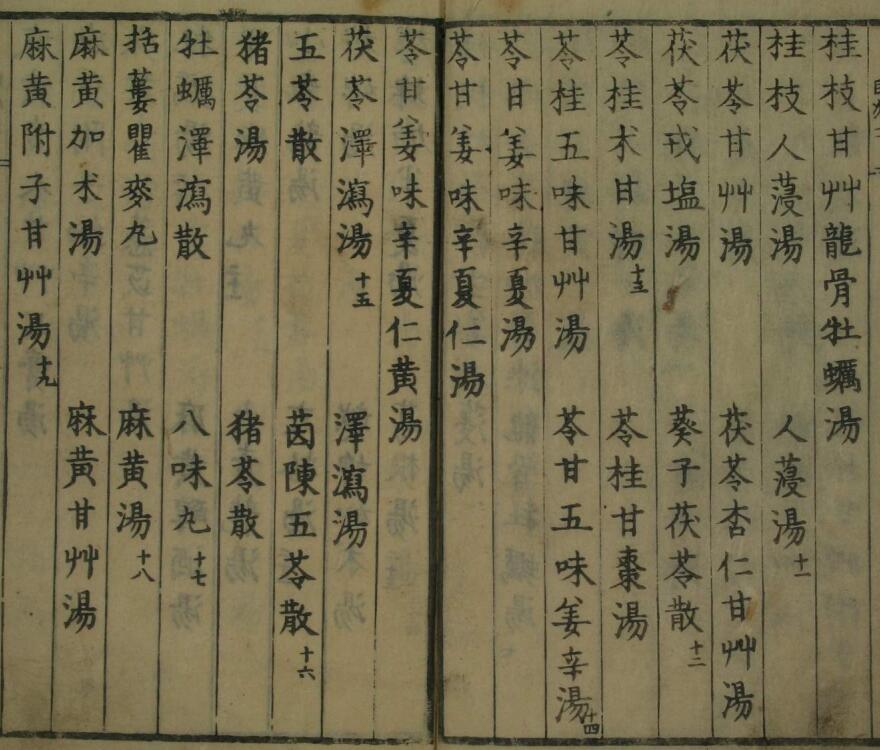 桂枝甘艸龍骨牡蠣湯
桂枝人蓡湯 人蓡湯十一
茯苓甘艸湯 茯苓杏仁甘艸湯
茯苓戎塩湯 葵子茯苓散十二
苓桂朮甘湯十三 苓桂甘棗湯
苓桂五味甘艸湯 苓甘五味姜辛湯十四
苓甘姜味辛夏湯
苓甘姜味辛夏仁湯
苓甘姜味辛夏仁黄湯
茯苓澤瀉湯十五 澤瀉湯
五苓散 茵陳五苓散十六
猪苓湯 猪苓散
牡蠣澤瀉散 八味丸十七
括蔞瞿麥丸 麻黄湯十八
麻黄加朮湯 麻黄甘艸湯
麻黄附子甘艸湯十九